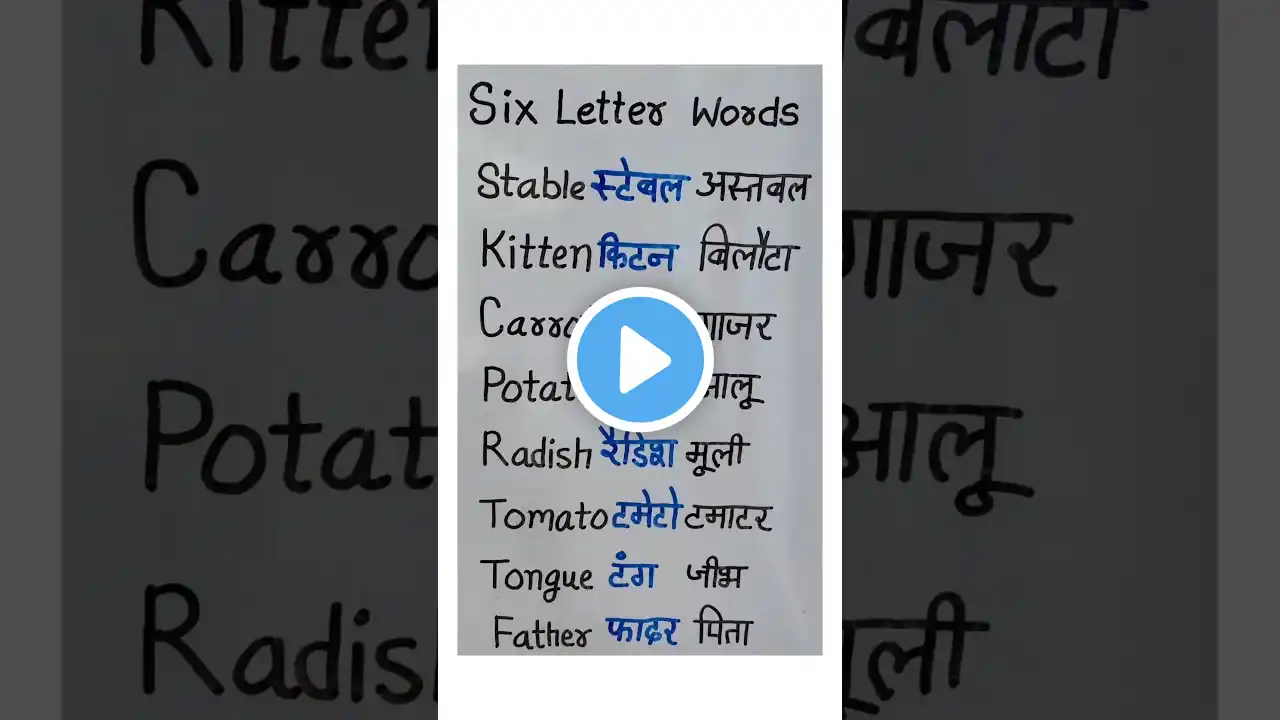 Six Letter Words
Stable स्टेबल अस्तबल
Kitten किटन बिलौटा
गाजर
Radish रैडिश मूली
Tomato टमेटो टमाटर
Tongue टंग जीभ
Father फादर पिता